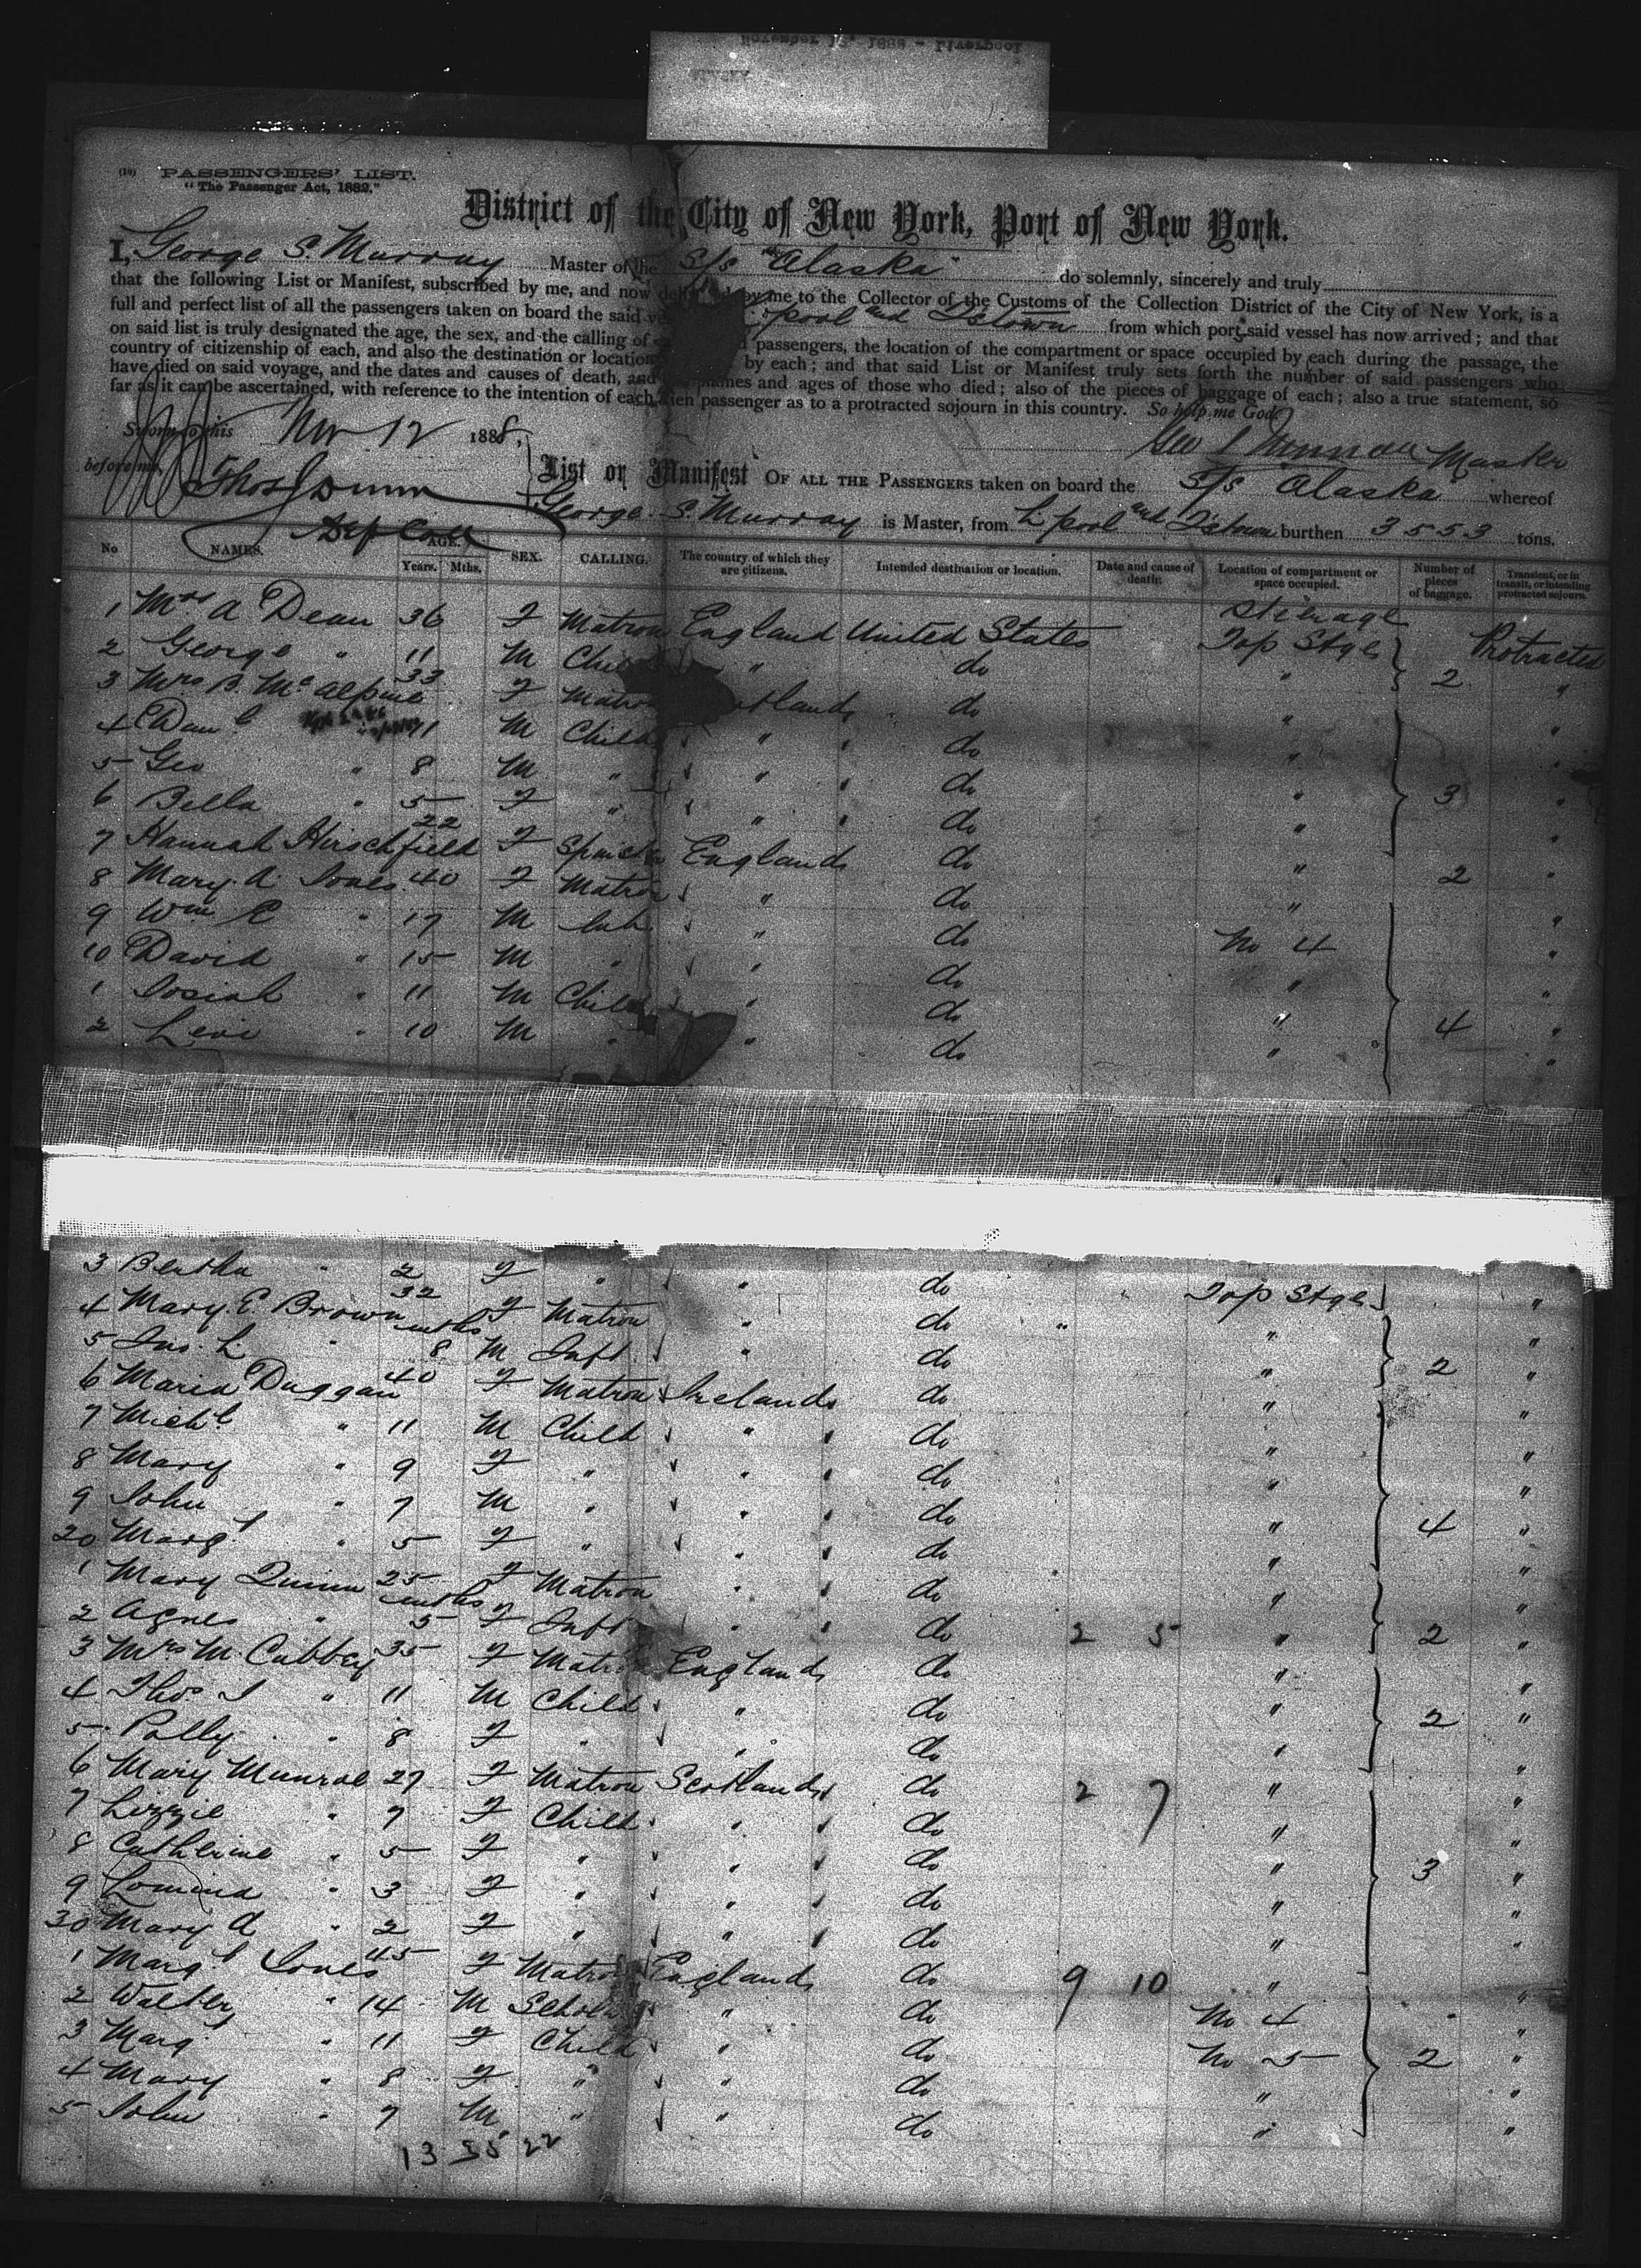 November 12, 1888 - Liverpool
(10) PASSENGERS' LIST.
"The Passenger Act, 1882."
District of the City of New York, Port of New York.
I, George S. Murray Master of the S/s "Alaska" do solemnly, sincerely and truly
that the following List or Manifest, subscribed by me, and now by me to the Collector of the Customs of the Collection District of the City of New York, is a
full and perfect list of all the passengers taken on board the said pool and Qstown from which port said vessel has now arrived; and that
on said list is truly designated the age, the sex, and the calling of passengers, the location of the compartment or space occupied by each during the passage, the
country of citizenship of each, and also the destination or location by each; and that said List or Manifest truly sets forth the number of said passengers who
have died on said voyage, and the dates and causes of death, and names and ages of those who died; also of the pieces of baggage of each; also a true statement, so
far as it can be ascertained, with reference to the intention of each alien passenger as to a protracted sojourn in this country. So help me God
Sworn to this Nov 12 1888,
Geo S Murray Master
before me, Thos Dunn
Dep Coll
List or Manifest OF ALL THE PASSENGERS taken on board the S/s Alaska whereof
George S. Murray is Master, from L'pool and Q'stown burthen 3553 tons.
No NAMES. AGE. Years. Mths. SEX. CALLING. The country of which they are citizens. Intended destination or location. Date and cause of death. Location of compartment or space occupied. Number of pieces of baggage. Transient, or in transit, or intending protracted sojourn.
Steerage
1 Mrs A Dean 36 F Matron England United States Top Stge Protracted
2 George " 11 M Child " do " 2 "
3 Mrs B. McAlpine 33 F Matron do " "
4 Danl 11 M Child " do " "
5 Geo " 8 M " " do " 3 "
6 Bella " 5 F " " do " "
7 Hannah Hirschfield 22 F England do " 2 "
8 Mary A Jones 40 F Matron " do " "
9 Wm E " 17 M Lab " do No 4 "
10 David " 15 M " " do " "
1 Josiah " 11 M Child " do " 4 "
2 Levi " 10 M " " do " "
3 Bertha " 2 F " " do Top Stge "
4 Mary E. Brown 32 F Matron " do " "
5 Jno. L " mths 8 M Inft " do " 2 "
6 Maria Duggan 40 F Matron Ireland do " "
7 Michl " 11 M Child " do " "
8 Mary " 9 F " " do " "
9 John " 7 M " " do " 4 "
20 Margt " 5 F " " do " "
1 Mary Quinn 25 F Matron " do " "
2 Agnes " mths 5 F Inft " do 2 5 " 2 "
3 Mrs M. Cubbey 35 F Matron England do " "
4 Thos. J " 11 M Child " do " 2 "
5 Polly " 8 F " " do " "
6 Mary Munroe 27 F Matron Scotland do 2 7 " "
7 Lizzie " 7 F Child " do " "
8 Catherine " 5 F " " do " 3 "
9 " 3 F " " do " "
30 Mary A " 2 F " " do " "
1 Margt Jones 45 F Matron England do 9 10 " "
2 Walter " 14 M Scholar " do No 4 "
3 Margt " 11 F Child " do No 5 2 "
4 Mary " 8 F " " do " "
5 John " 7 M " " do " "
13 35 22